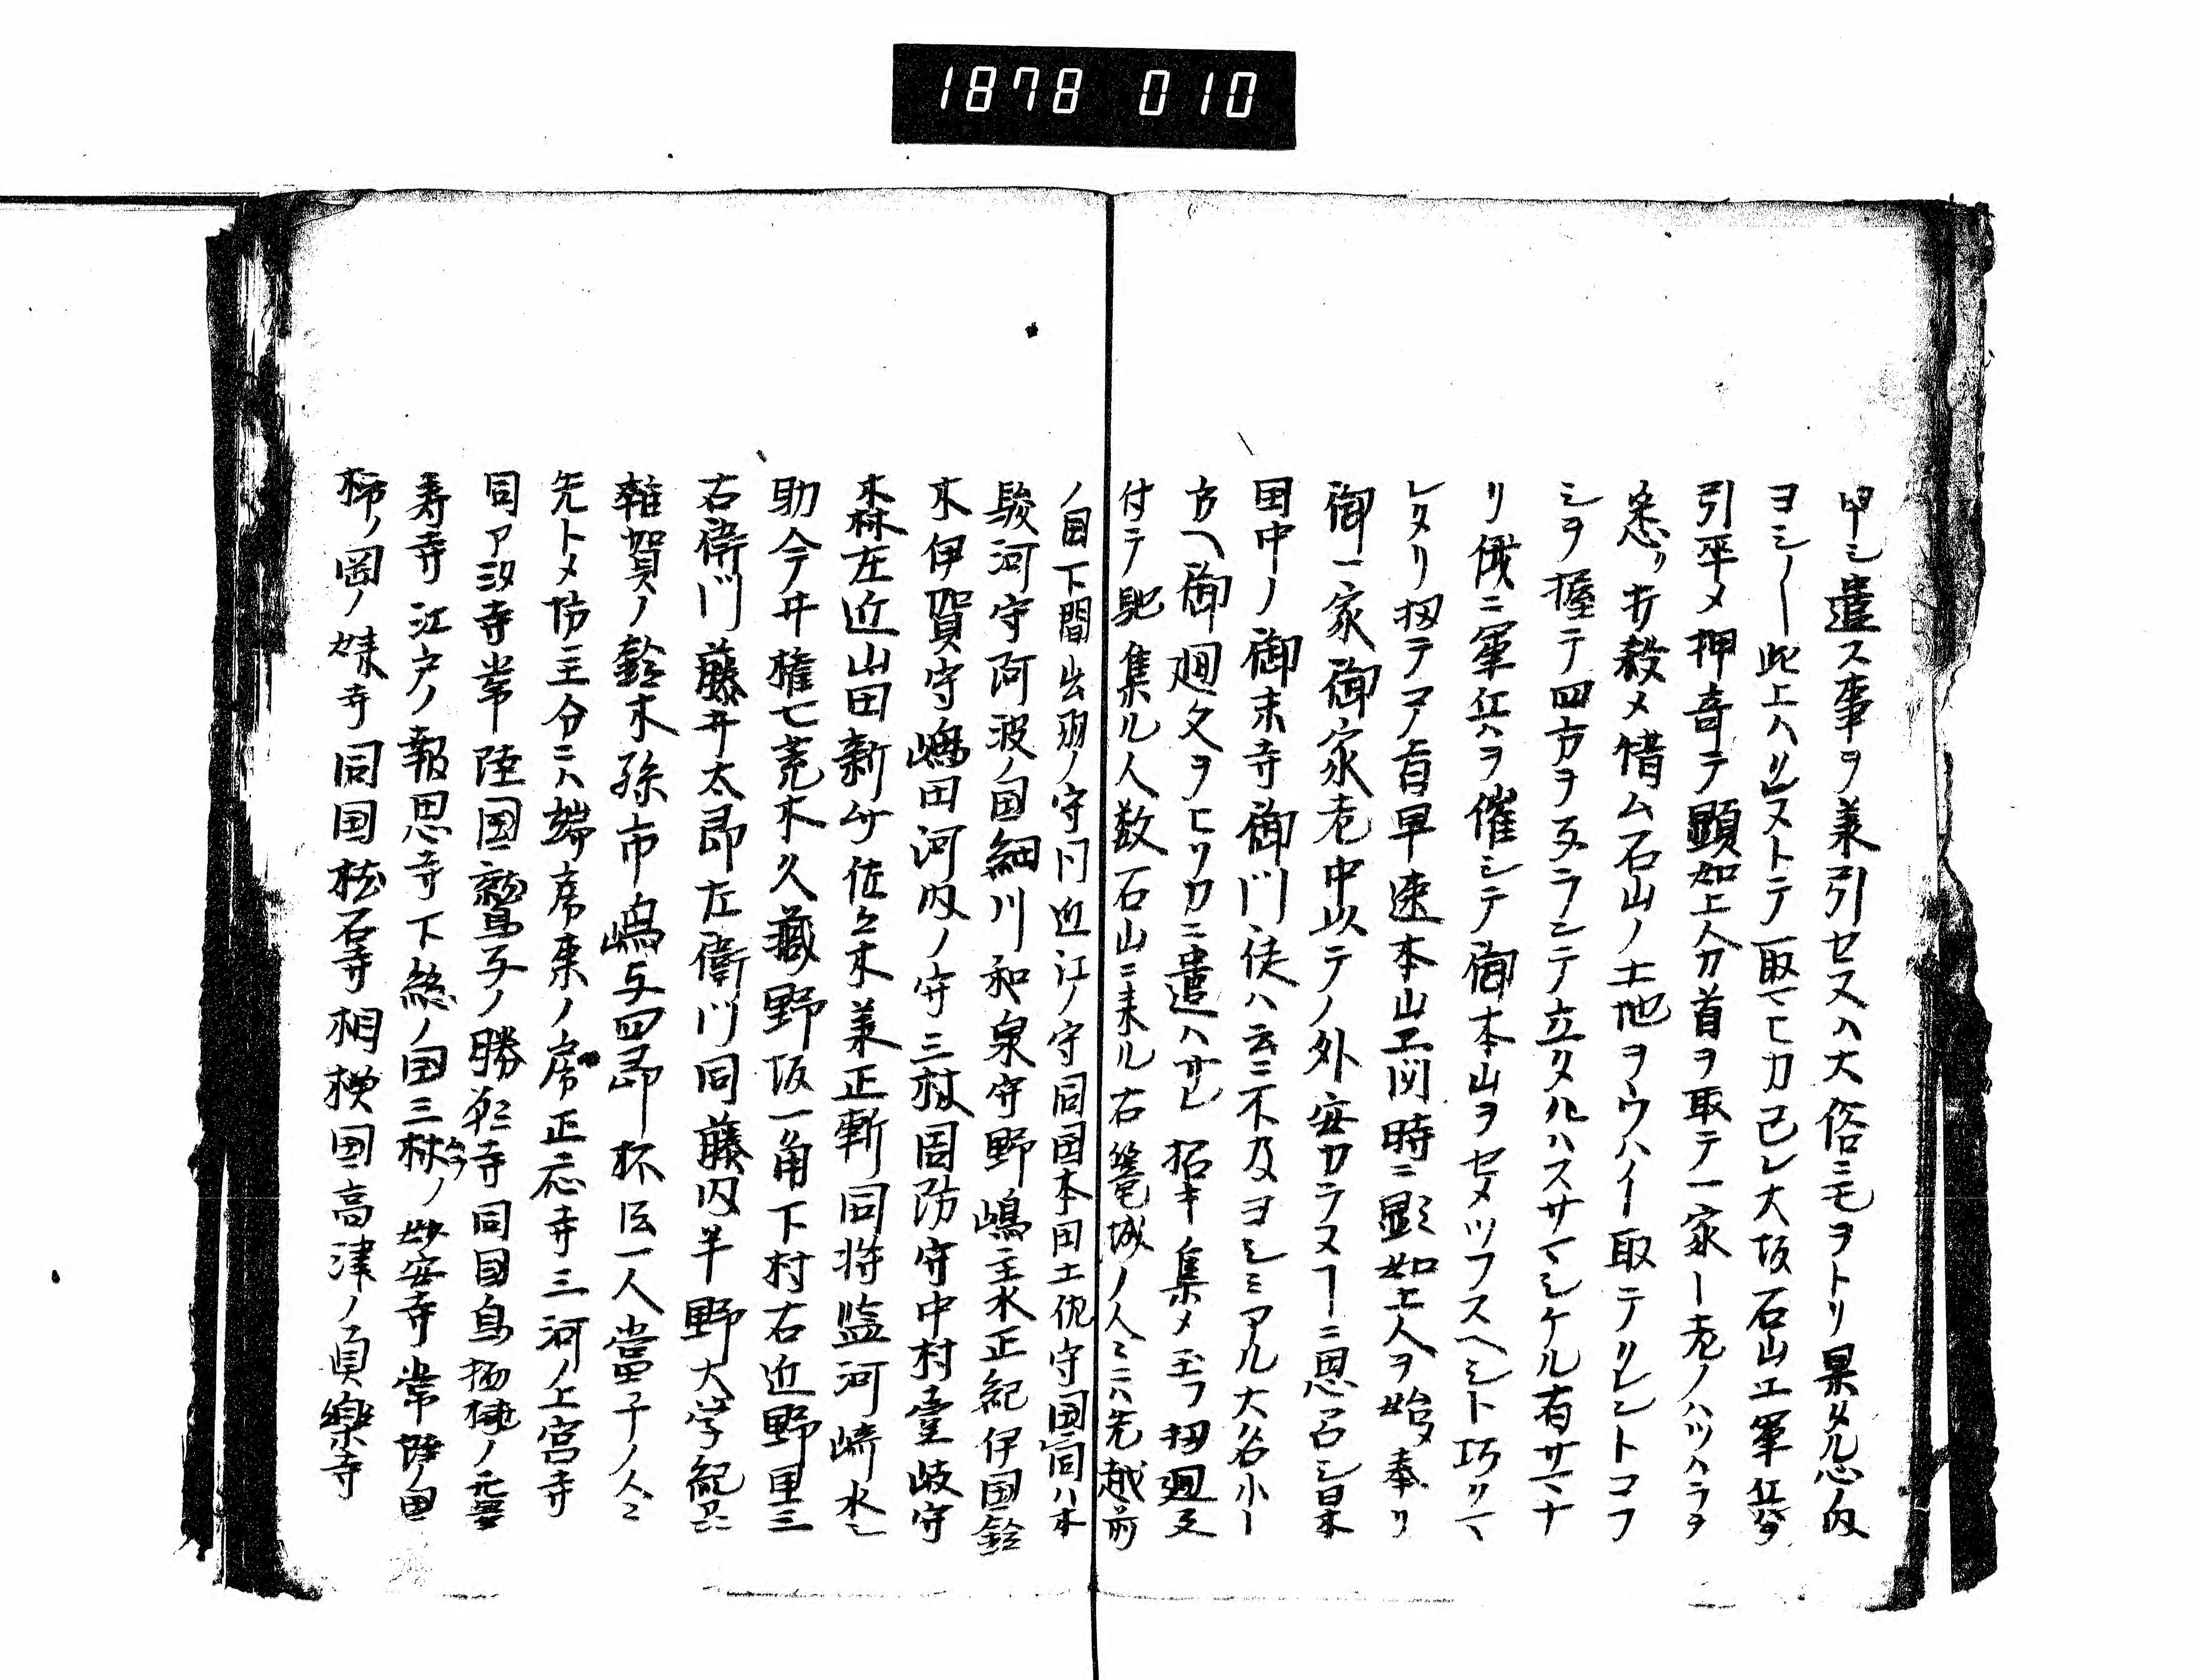 1878 010
申シ遣ス事ヲ兼引セスハ大俗ニモヲトリ果タル心ノ内
ヨシ〳〵此上ハ リレストテ取マヒカ己レ大坂石山エ軍兵ヲ
引平メ押寄テ顕如上人カ首ヲ取テ一家一老ノハツハラヲ
悉ク打殺メ惜ム石山ノ土地ヲウハイ取テ リレントコフ
シヲ握テ四方ヲ ラシテ立タルハスサマシケル有サマナ
リ俄ニ軍兵ヲ催シテ御本山ヲセメツフスヘシト巧リマ
レタリ扨テコノ旨早速本山エ 時ニ顕如上人ヲ始メ奉リ
御一家御家老中以テノ外安カラヌ ニ思召シ日本
国中ノ御末寺御門徒ハ云ニ不及ヨシミアル大名小
方ヘ御廻文ヲヒソカニ遣ハサレ招キ集メ玉フ扨廻文
付テ馳集ル人数石山ニ来ル右篭城ノ人々ニハ先越前
ノ国下間出羽ノ守同近江ノ守同国本田土佐守国同ハ木
駿河守阿波ノ国細川和泉守野嶋主水正紀伊国鈴
木伊賀守嶋田河内ノ守三村周防守中村壹岐守
木森左近山田新 佐々木兼正 同将監河崎水
助今井権七荒木久藏野坂一角下村右近野里三
右衛門藤井太郎左衛門同藤内半野大学紀
雑賀ノ鈴木孫市嶋与四郎 一人當千ノ人々
先トメ坊主分ニハ端席東ノ席正応寺三河ノ上宮寺
同ア 寺常陸国 ノ勝 寺同国鳥 ノ無
寿寺江戸ノ報恩寺下総ノ国三村ノ妙安寺常陸ノ国
柿ノ岡ノ 寺同国 石寺相模国高津ノ真樂寺